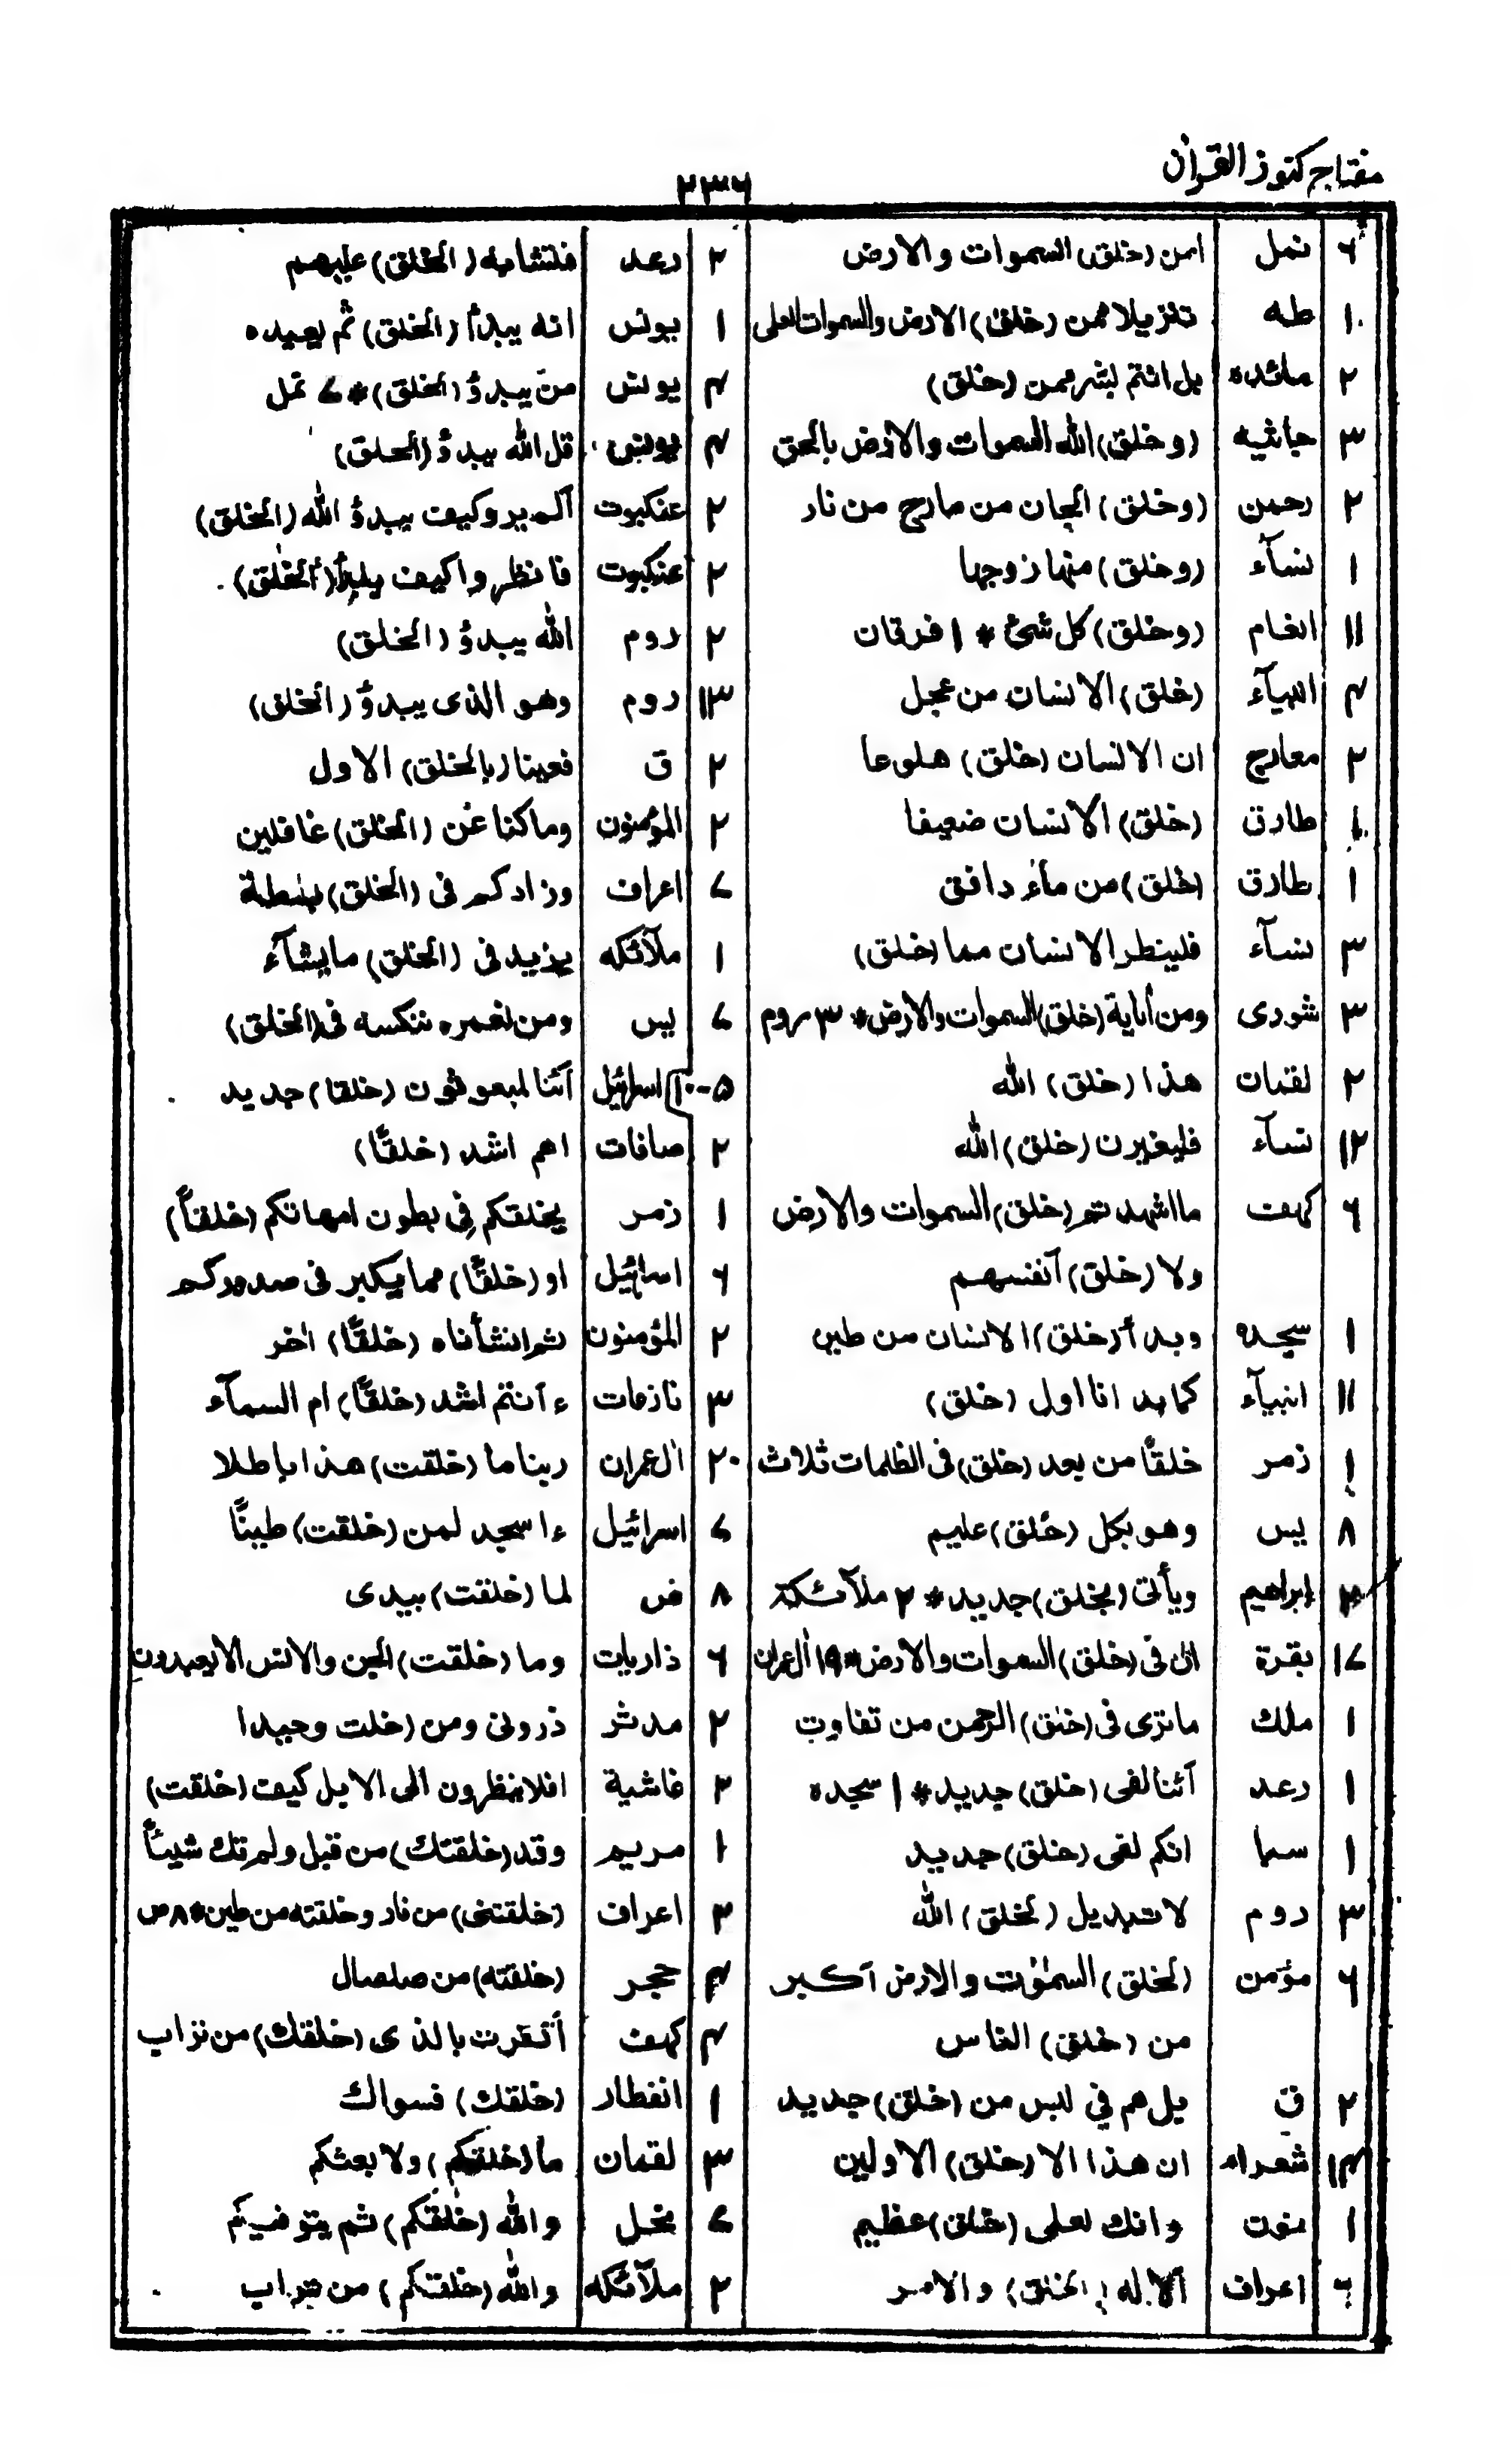 مفتاح كنوز القرآن
٢٣٦
٦ نمل امن (خلق) السموات والارض
١٠ طه تنزيلا ممن (خلق) الارض والسموات العلى
٢ مائده بل انتم بشر ممن (خلق)
٣ جاثيه (وخلق) الله السموات والارض بالحق
٢ رحمن (وخلق) الجان من مارج من نار
١ نسآء (وخلق) منها زوجها
١١ انعام (وخلق) كل شئ * ١ فرقان
٤ انبيآء (خلق) الانسان من عجل
٢ معارج ان الانسان (خلق) هلوعا
طارق (خلق) الانسان ضعيفا
١ طارق (خلق) من مآء دافق
٣ نسآء فلينظر الانسان مما (خلق)
٣ شورى ومن أياية (خلق) السموات والارض * ٣ روم
٢ لقمان هذا (خلق) الله
١٢ نسآء فليغيرن (خلق) الله
٦ كهف ما اشهد تهم (خلق) السموات والارض
ولا (خلق) آنفسهم
١ سجده وبدأ (خلق) الانسان من طين
١١ انبيآء كما بدانا اول (خلق)
١ زمر خلقًا من بعد (خلق) فى الظلمات ثلاث
٨ يس وهو بكل (خلق) عليم
ابراهيم ويأتى (بخلق) جديد * ٢ ملآئكة
١٧ بقرة ان فى (خلق) السموات والارض * ١٩ أل عمران
١ ملك ما ترى فى (خلق) الرحمن من تفاوت
١ رعد آئنا لفى (خلق) جديد * ١ سجده
١ سبا انكم لفى (خلق) جديد
٣ روم لا تبديل (لخلق) الله
٦ مؤمن (لخلق) السمٰوٰت والارض آكبر
من (خلق) الناس
٢ ق بل هم في لبس من (خلق) جديد
شعراء ان هذا الا (خلق) الاولين
١ وانك لعلى (خلق) عظيم
اعراف آلا له (الخلق) والامر
٢ رعد فتشابه (الخلق) عليهم
١ يونس انه يبدأ (الخلق) ثم يعيده
٤ يونس من يبدؤ (الخلق) * ٧ نمل
٤ يونس قل الله يبدؤ (الخلق)
٢ عنكبوت آلم يروكيف يبدؤ الله (الخلق)
٢ عنكبوت فانظروا كيف بدأ (الخلق)
٢ روم الله يبدؤ (الخلق)
١٣ روم وهو الذى يبدؤ (الخلق)
٢ ق فعيينا (بالخلق) الاول
٢ المؤمنون وما كنا عن (الخلق) غافلين
٧ اعراف وزادكم فى (الخلق) بسطة
١ ملآئكه يزيد فى (الخلق) مايشآء
٧ يس ومن نعمره ننكسه فى (الخلق)
٥-١٠ اسرائيل آئنا لمبعوثون (خلقا) جديد
٢ صافات اهم اشد (خلقًا)
١ زمر يخلقكم فى بطون امهاتكم (خلقاً)
٦ اسرائيل او (خلقًا) مما يكبر فى صدوركم
٢ المؤمنون ثم انشأناه (خلقًا) اٰخر
٣ نازعات ءآنتم اشد (خلقًا) ام السمآء
٢٠ اٰل عمران ربنا ما (خلقت) هذا باطلا
٧ اسرائيل ءاسجد لمن (خلقت) طينًا
٨ ص لما (خلقت) بيدى
٦ ذاريات وما (خلقت) الجن والانس الا ليعبدون
٢ مدثر ذرونى ومن (خلت وحيدا
٢ غاشية افلا ينظرون الى الابل كيف (خلقت)
١ مريم وقد (خلقتك) من قبل ولم تك شيئاً
٢ اعراف (خلقتنى) من نار وخلقته من طين * ٨ ص
حجر (خلقته) من صلصال
٤ كهف أكفرت بالذى (خلقك) من تراب
١ انفطار (خلقك) فسواك
٣ لقمان ما (خلقكم) ولا بعثكم
٧ نحل والله (خلقكم) ثم يتوفيكم
٢ ملآئكه والله (خلقكم) من تراب